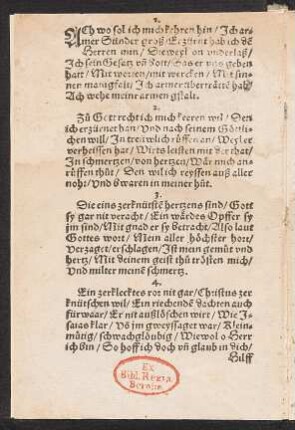 1.
ACh wo sol ich mich kehren hin / Ich ar-
mer Sünder groß / Erzürnt hab ich dē
Herren min / Diewyl on vnderlaß /
Ich sein Gesatz vō Gott / Das er vns geben
hatt / Mit worten / mit wercken / Mit sin-
nen manigfalt / Ich armer übertreten hab /
Ach wehe meiner armen gstalt.
2.
Zů Gott recht ich mich keeren wil / Den
ich erzürnet han / Vnd nach seinem Göttli-
chen will / In trewlich rüffen an / Weyl er
verheissen hat / Wirts leisten mit der that /
In schmertzen / von hertzen / Wär mich an-
rüffen thůt / Den wil ich reyssen auß aller
noht / Vnd ôwaren in meiner hůt.
3.
Die eins zerknütstē hertzens sind / Gott
sy gar nit veracht / Ein wärdes Opffer sy
jm sind / Mit gnad er sy betracht / Also laut
Gottes wort / Mein aller höchster hort /
Verzaget / erschlagen / Ist mein gemůt vnd
hertz / Mit deinem geist thů trösten mich /
Vnd milter meinē schmertz.
4.
Ein zerklecktes ror nit gar / Christus zer
knütschen wil / Ein riechendē dachten auch
fürwaar / Er nit außlöschen wirt / Wie J-
saias klar / Vō jm gweyssaget war / Klein-
mütig / schwachglöubig / Wiewol o Herr
ich bin / So hoff ich doch vñ glaub in dich /
Hilff
Ex
Bibl. Regia
Berolin.